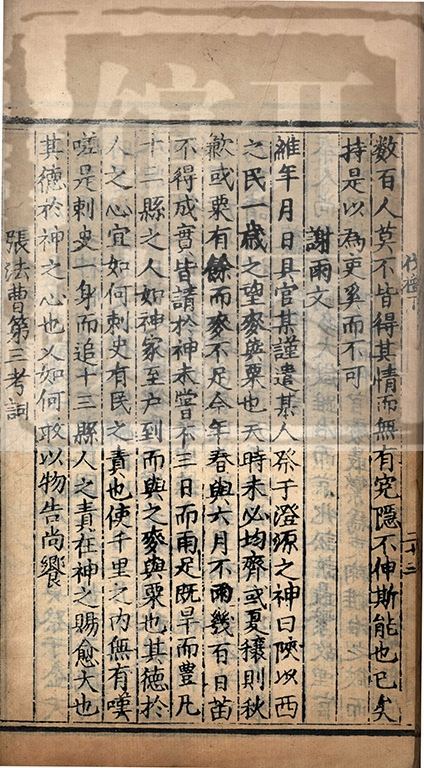 数百人莫不皆得其情而無有冤隱不伸斯能也已矣
持是以為吏奚而不可
謝雨文
維年月日具官某謹遣某人祭于澄源之神曰陝以西
之民一歲之望麥與粟也天時未必均齊或夏穰則秋
歉或粟有餘而麥不足今年春與六月不雨幾百日苗
不得成實皆請於神未嘗不三日而雨足既旱而豊凡
十三縣之人如神家至户到而與之麥與粟也其德於
人之心宜如何刺史有民之責也使千里之内無有嘆
嗟是刺史一身而追十三縣人之責在神之賜愈大也
其德於神之心也又如何敢以物告尚饗
張法曹第三考詞